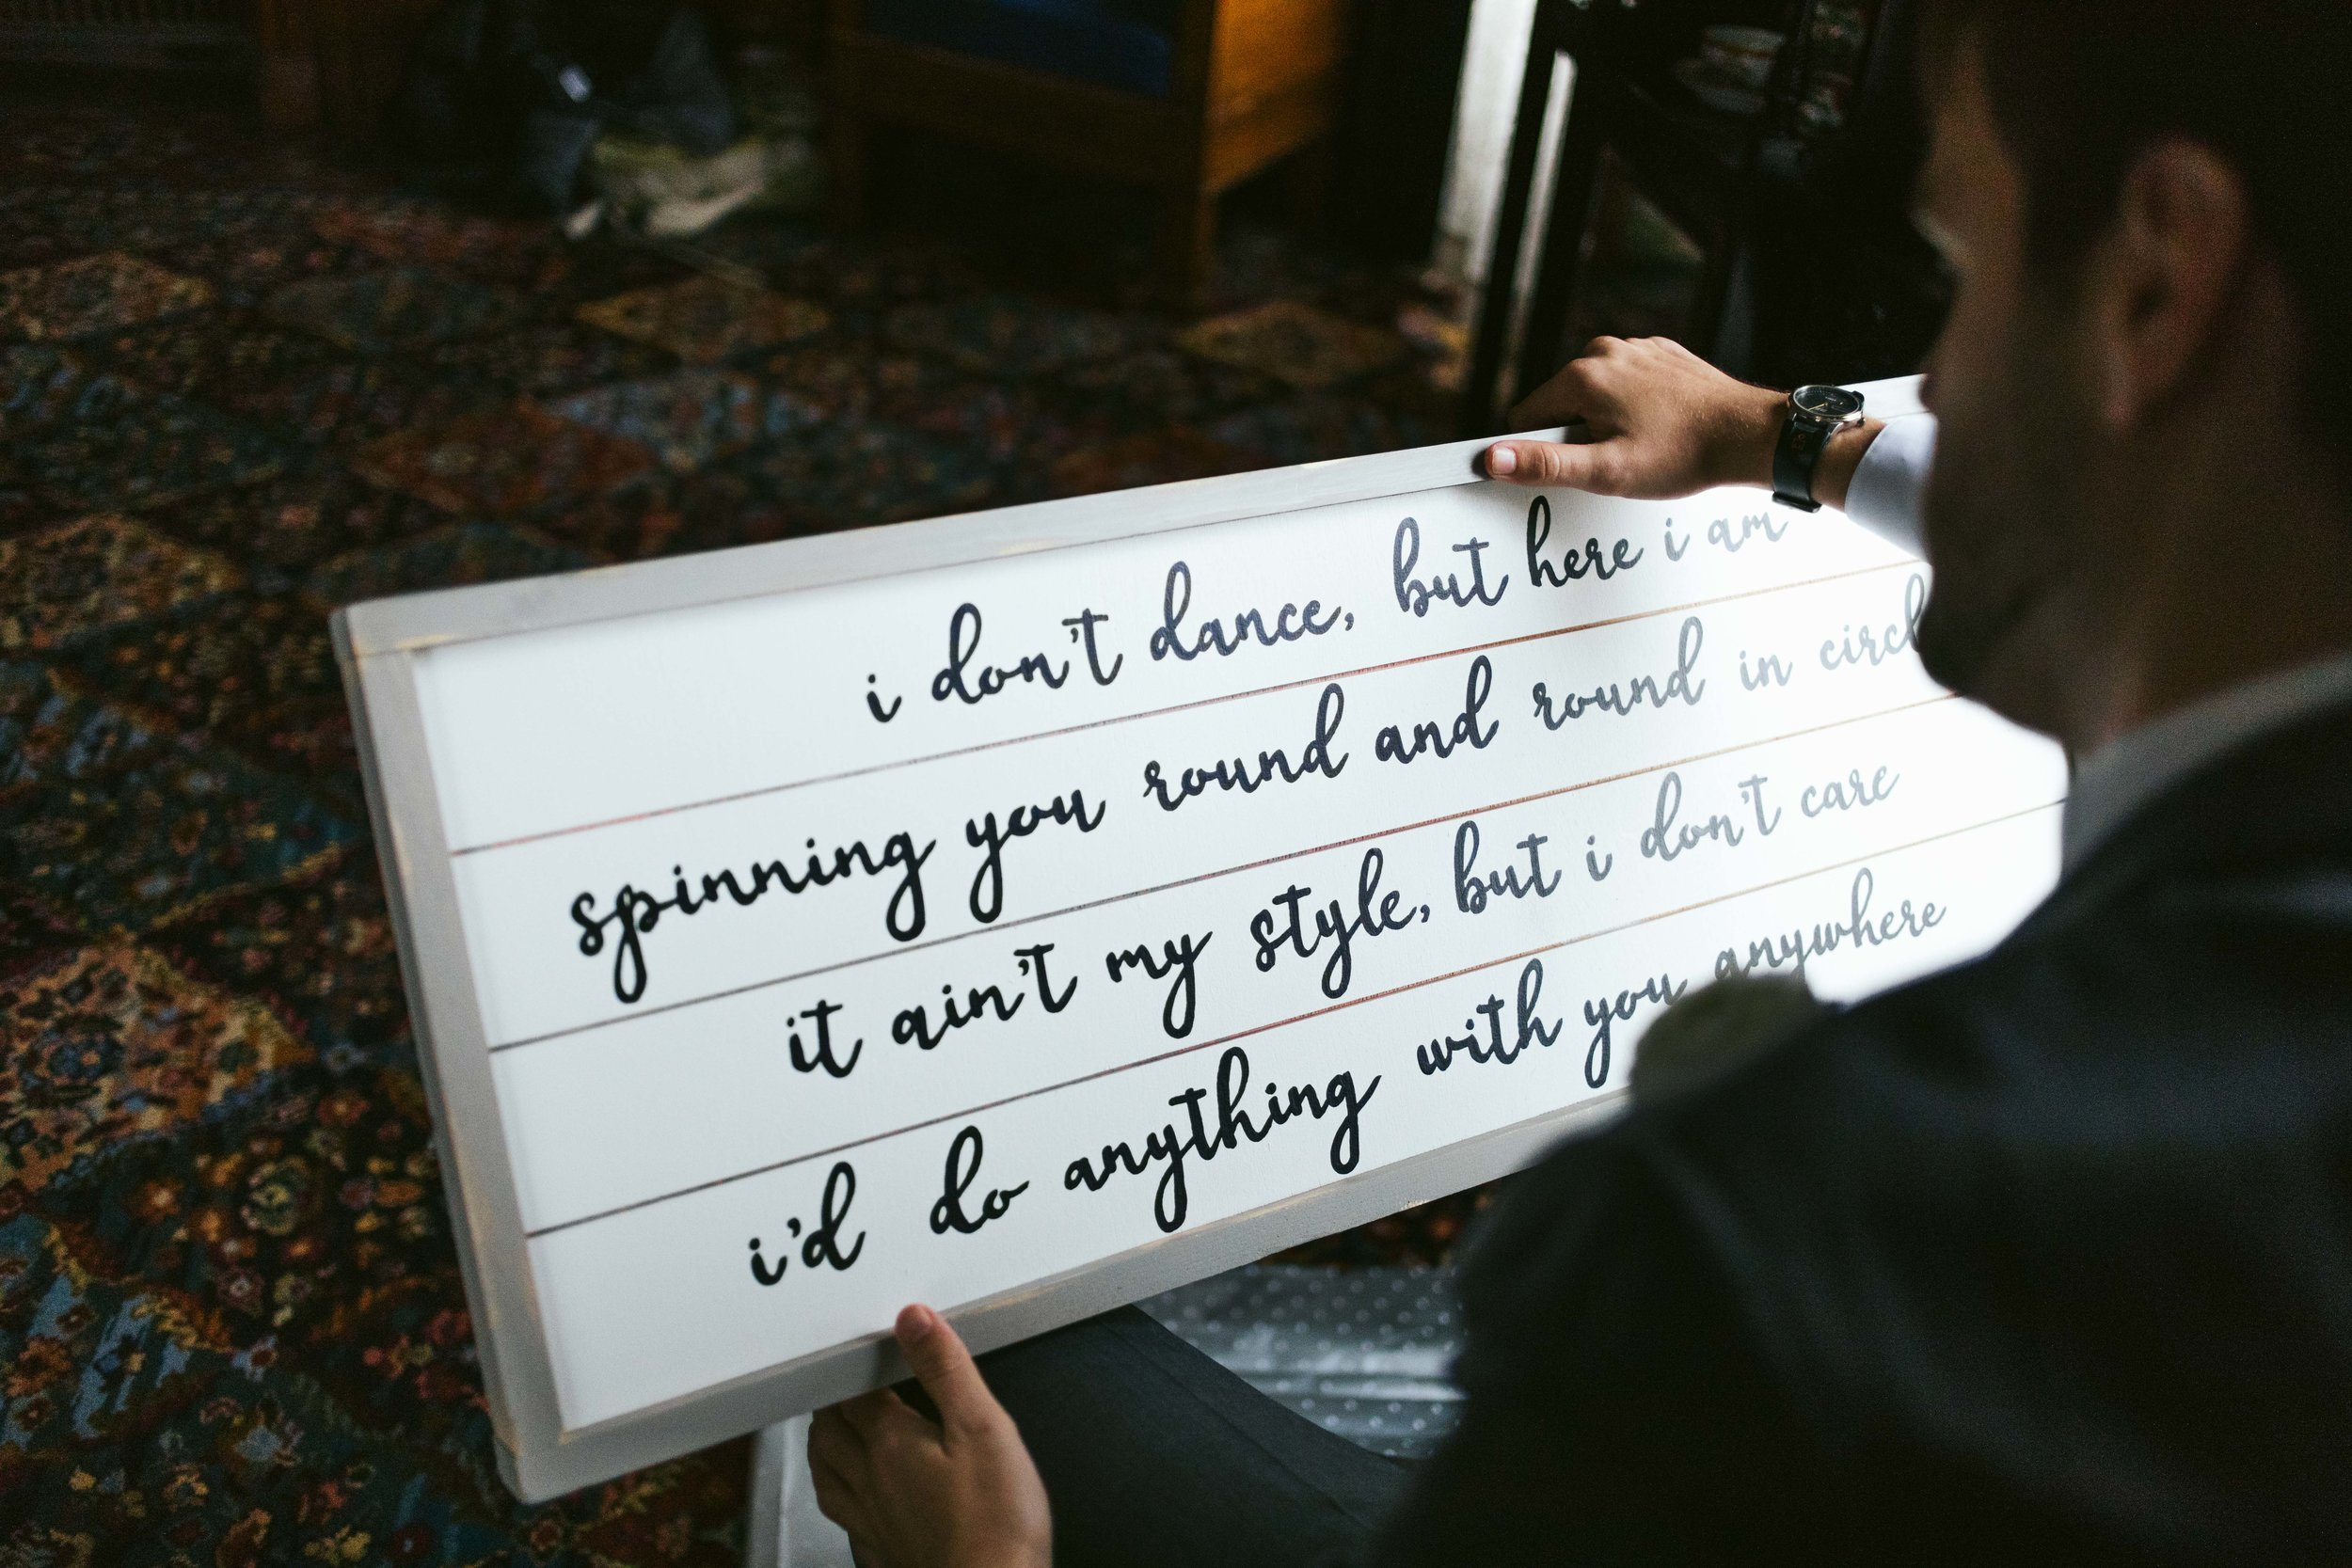 i don't dance, but here i am
spinning you round and round in circl
it ain't my style, but i don't care
i'd do anything with you anywhere